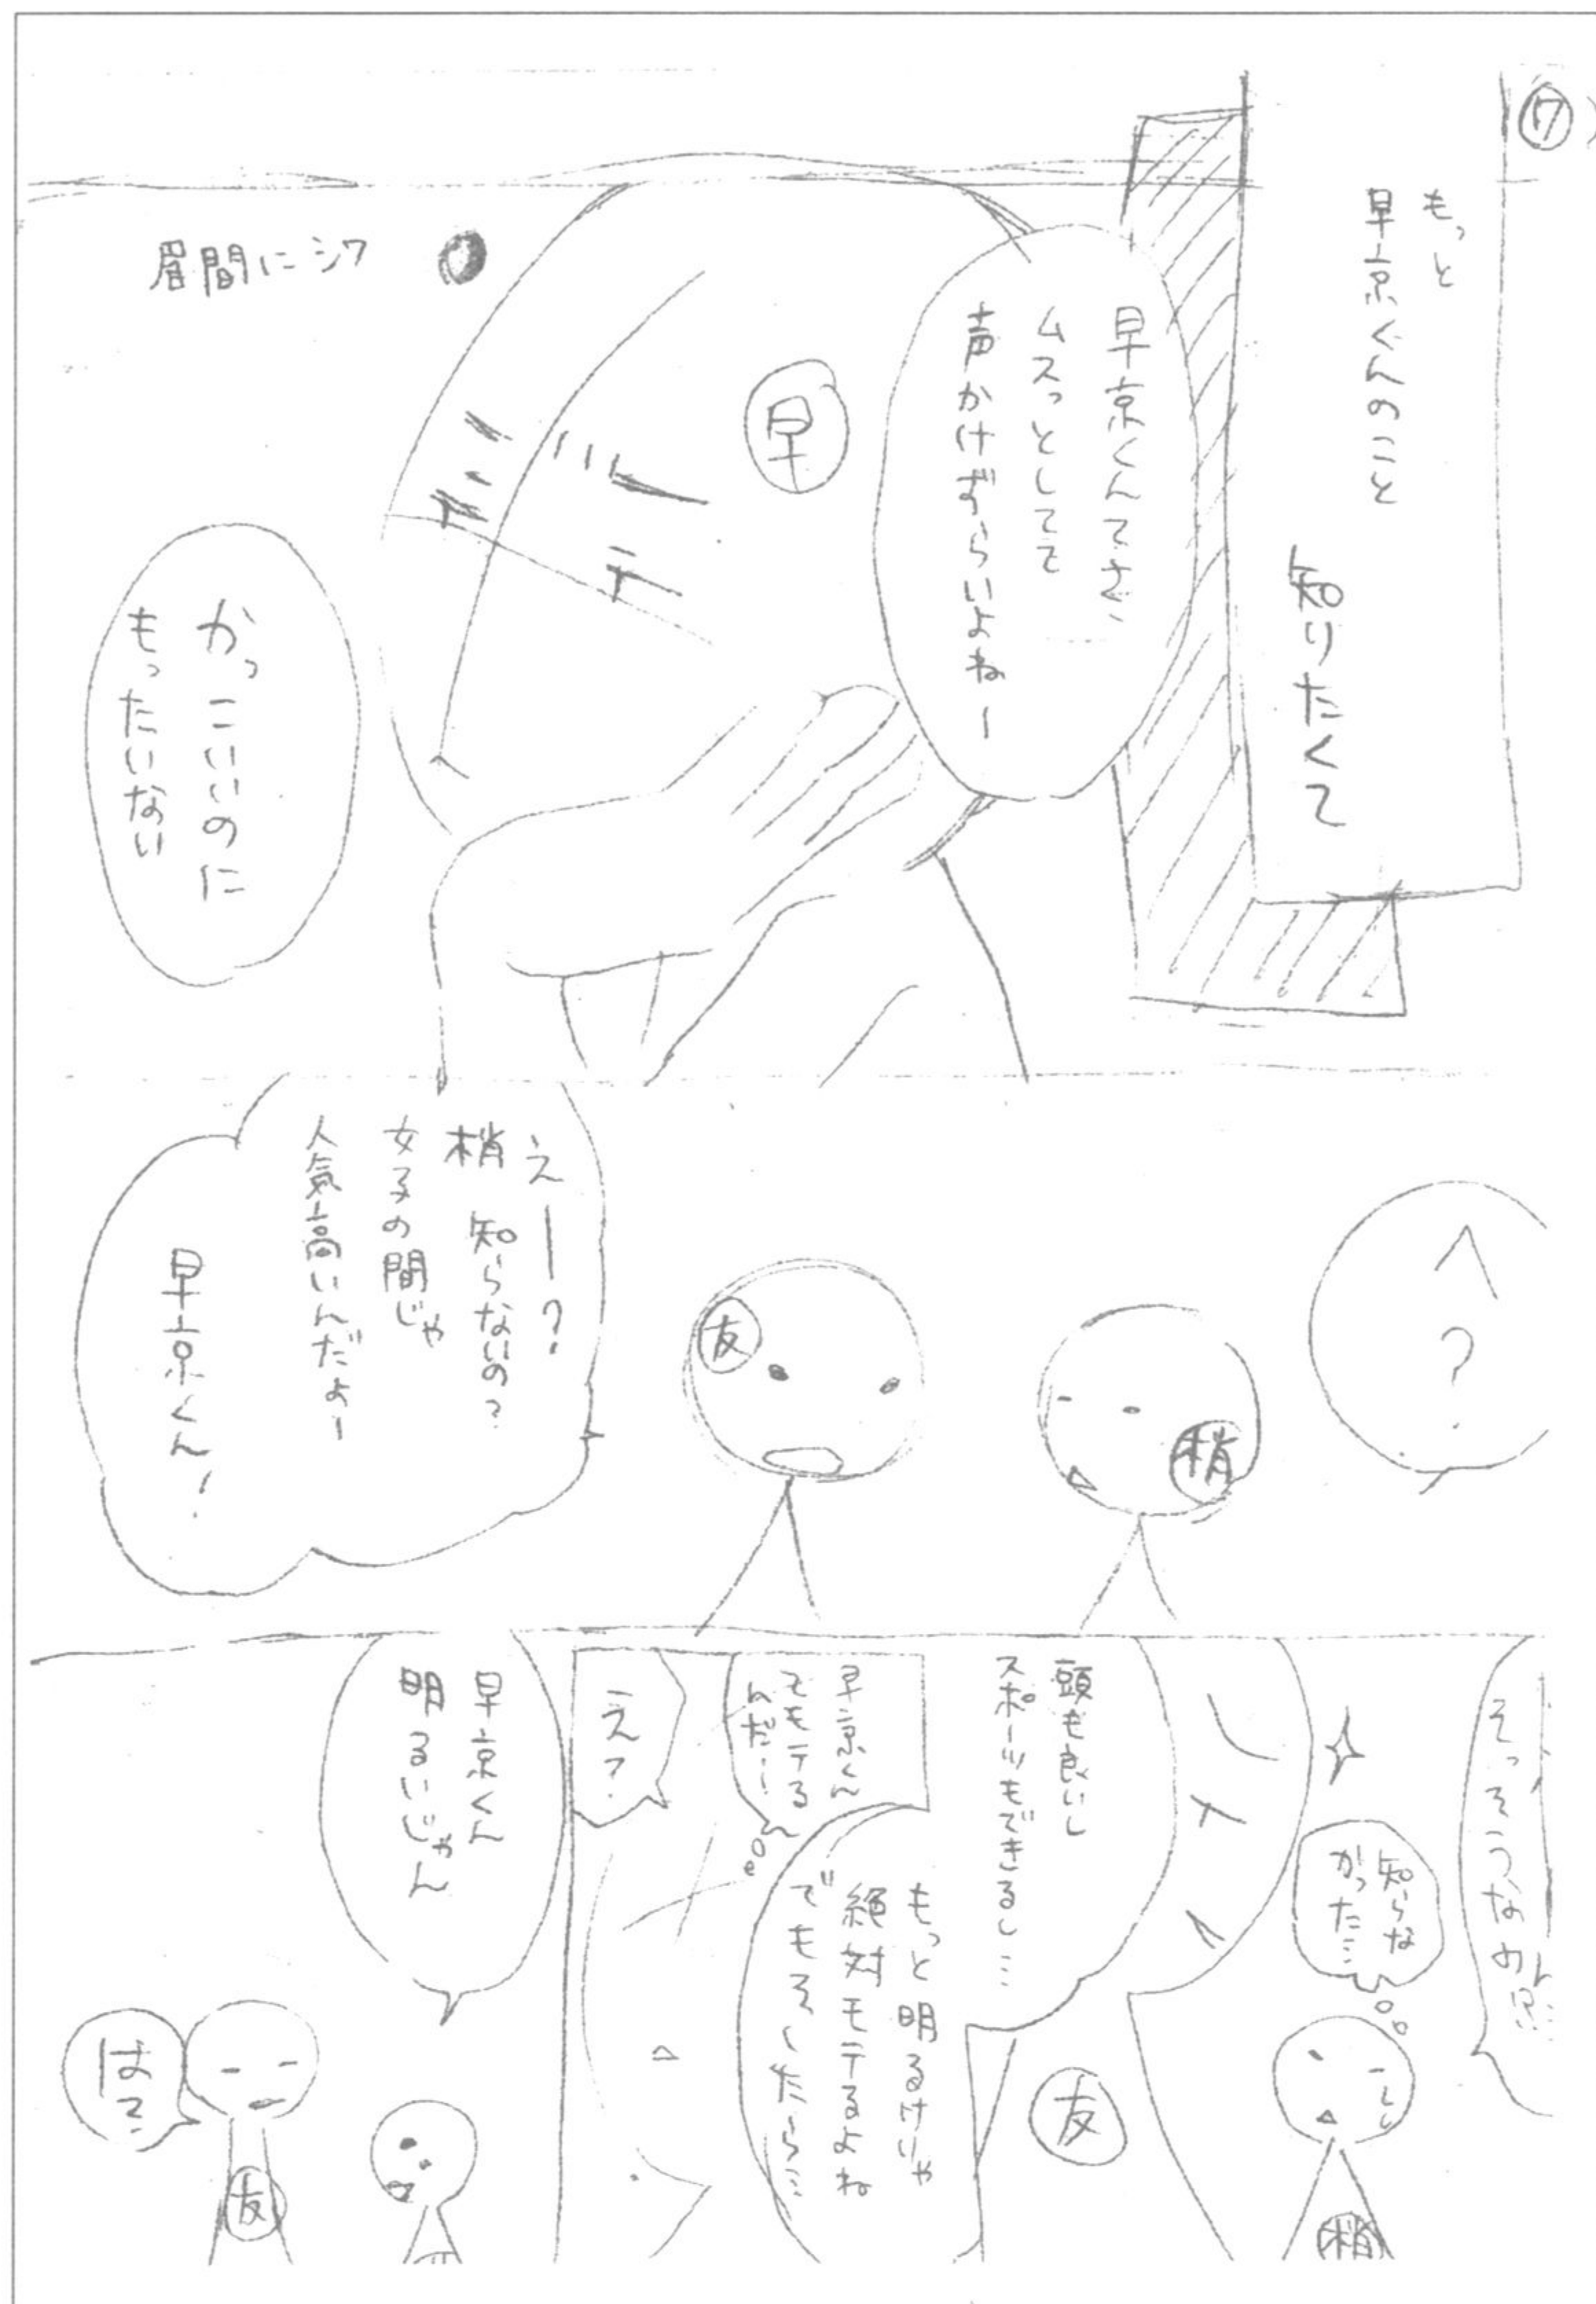 ⑦
もっと
早京くんのこと
知りたくて
早京くんてさ、
ムスっとしてて
声かけずらいよねー
早
眉間にシワ
かっこいいのに
もったいない
へ?
梢
友
えー?
梢 知らないの?
女子の間じゃ
人気高いんだよー
早京くん!
そっそうなの
知らな
かった…
梢
頭も良いし
スポーツもできるし…
友
もっと明るけりゃ
絶対モテるよね
でもそしたら…
早京くん
てモテる
んだ…
え?
早京くん
明るいじゃん
友